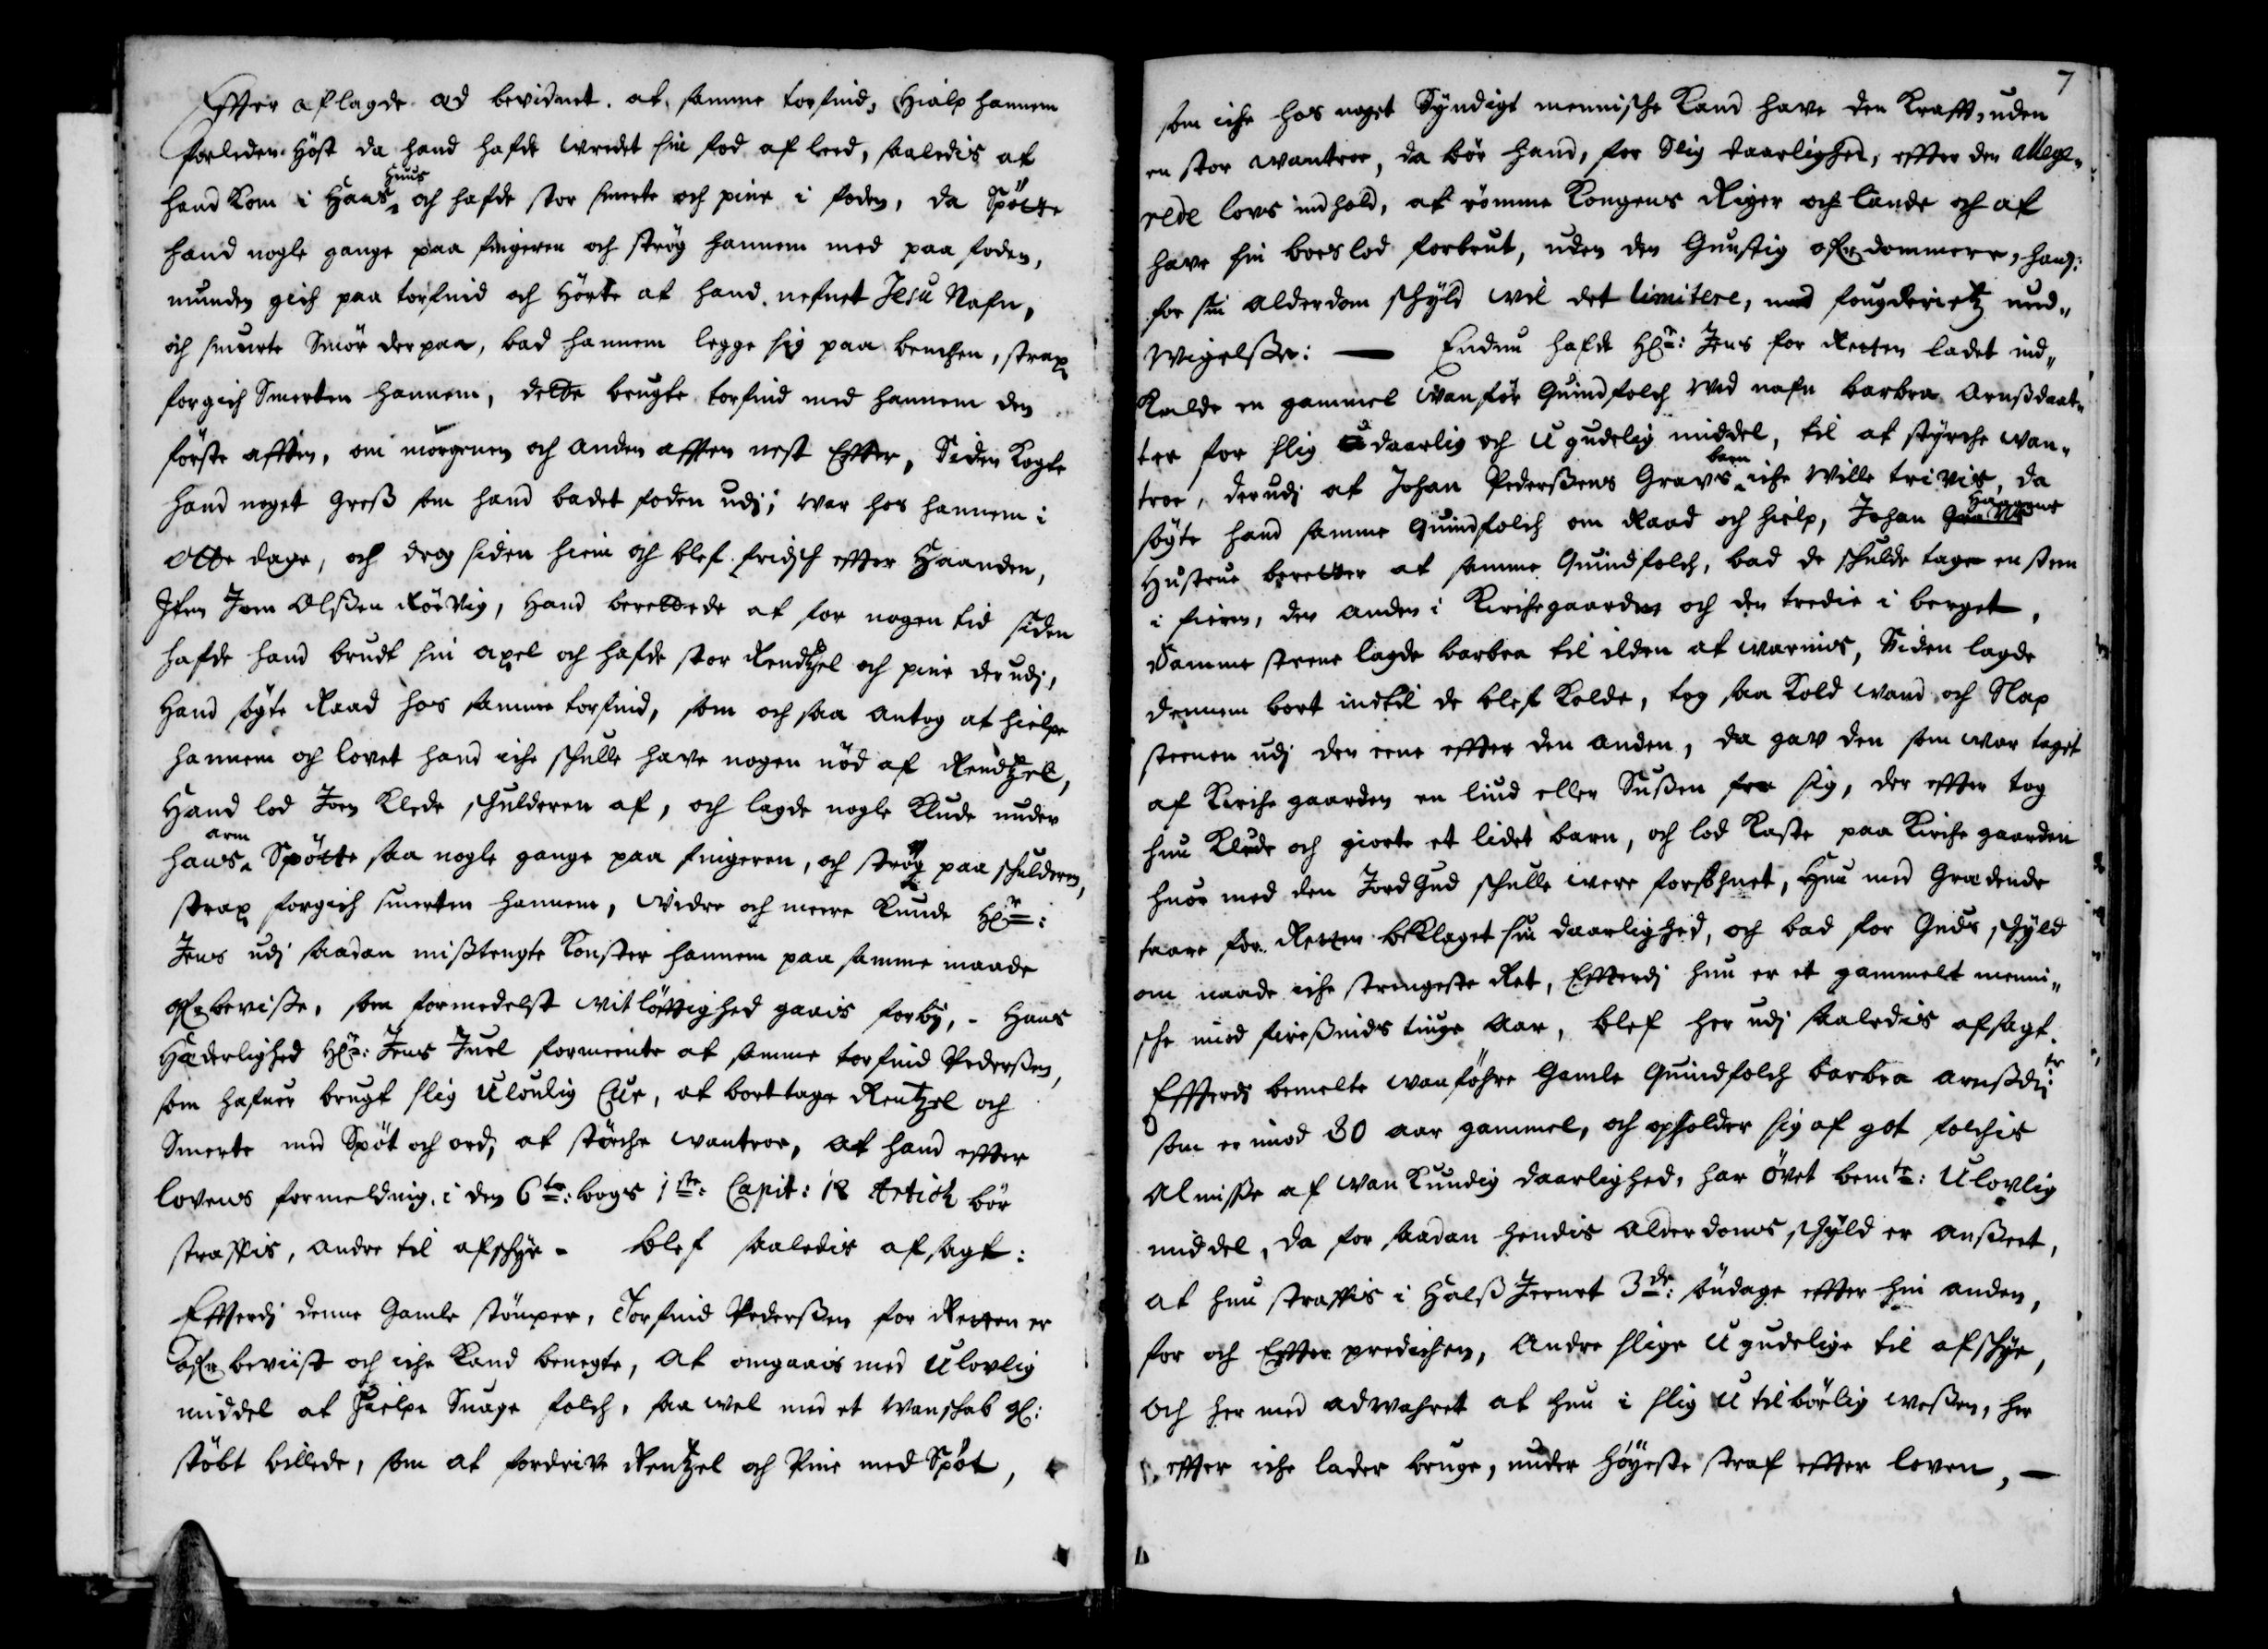 Effter aflagde æd bevidnet. at samme torfind, Hialp hannem
forleden Høst da hand hafde wredet sin fod af leed, saaledis at
hand kom i Haas Huus och hafde stor smerte och pine i foden, da Spötte
hand nogle gange paa fingeren och strög hannem med paa foden,
munden gich paa torfind och Hörte at hand nefnet Jesu Nafn,
och smurte Smör derpaa, bad hannem legge sig paa benchen, strax
forgich Smerten hannem, dette brugte torfind med hannem den
förste afften, om morgenen och anden afften nest Effter, Siden kogte
hand noget Greß som hand badet foden udj; war hos hannem i
otte dage, och drog siden hiem och blef fridsch effter Haanden,
Item Joen Olßen Rörvig, Hand berettede at for nogen tid siden
hafde hand brudt sin axel och hafde stor Rendtzel och pine der udj,
Hand søgte Raad hos samme torfind, som och saa antog at hielpe
hannem och lovet hand iche schulle have nogen nöd af Rendtzel,
Hand lod Joen klede schulderen af, och lagde nogle klude under
hans arm Spötte saa nogle gange paa fingeren, och strög paa schulderen,
strax forgich smerten hannem, widre och meere kunde Hr:
Jens udj saadan mißtengte konster hannem paa samme maade
ofverbeviße, som formedelst witlöfftighed gaais forbj, - Hans
Hæderlighed Hr: Jens Juel formeente at samme torfind Pederßen,
som hafuer brugt slig Uloulig Cur, at borttage Rentzel och
Smerte med Spöt och ord, at störche wantroe, at hand effter
lovens formelding i den 6te: bogs 1ste: Capit: 12 Artich bör
straffis, andre til afschye - blef saaledis afsagt:
Effterdj denne Gamle stömper, Torfind Pederßen for Retten er
ofverbeviist och iche kand benegte, at omgaais med Ulovlig
middel at hielpe Suage folch, saa wel med et wanschab
stöbt billede, som at fordrive Rentzel och Pine med Spöt,
7
som iche hos noget Syndigt mennische kand have den krafft, uden
en stor wantroe, da bör hand, for slig daarlighed, effter den allege,,
rede lovs indhold, at römme kongens Riger och lande och at
have sin boeslod forbrut, uden den Gunstig ofverdommere, hans:
for sin alderdom schyld wil det limitere, med fougderietz und,,
wigelße: — Endnu hafde Hr: Jens for Retten ladet ind,,
kalde en gammel wanför Quindfolch wed nafn barbra Arnßdaat,,
ter for slig daarlig och Ugudelig middel, til at styrche wan,,
troe, derudj at Johan Pederßens Gravs barn iche wille trivis, da
søgte hand samme Quindfolch om Raad och hielp, Johan
Hustrue beretter at samme Quindfolch, bad de schulde tage en steen
i fieren, den anden i kirchegaarden och den tredie i berget,
Samme steene lagde barbra til ilden at warmis, Siden lagde
dennem bort indtil de blef kolde, tog saa kold wand och slap
steenen udj den eene effter den anden, da gav den som war taget
af kirchegaarden en liud eller Sußen fra sig, der effter tog
hun klude och giorte et lidet barn, och lod kaste paa kirche gaarden
huor med den Jord Gud schulle were forsohnet, Hun med Grædende
taare for Retten beklaget sin daarlighed, och bad for Guds schyld
om naade iche strengeste Ret, Effterdj hun er et gammelt menni,,
sche imod fireßinds tiuge Aar, blef her udj saaledis afsagt.
Effterdj bemelte wanföhre Gamle Quindfolch barbra arnßd:tr
som er imod 80 aar gammel, och opholder sig af got folchis
Almisse af wankundig daarlighed, har övet bemte: Ulovlig
middel, da for saadan hendis alderdoms schyld er anßeet,
at hun straffis i Halß Jernet 3de: søndage effter hin anden,
for och Effter predichen, Andre slige Ugudelige til afschye,
och her med adwahret at hun i slig Utilbörlig weßen, her
effter iche lader bruge, under höyeste straf effter loven, —